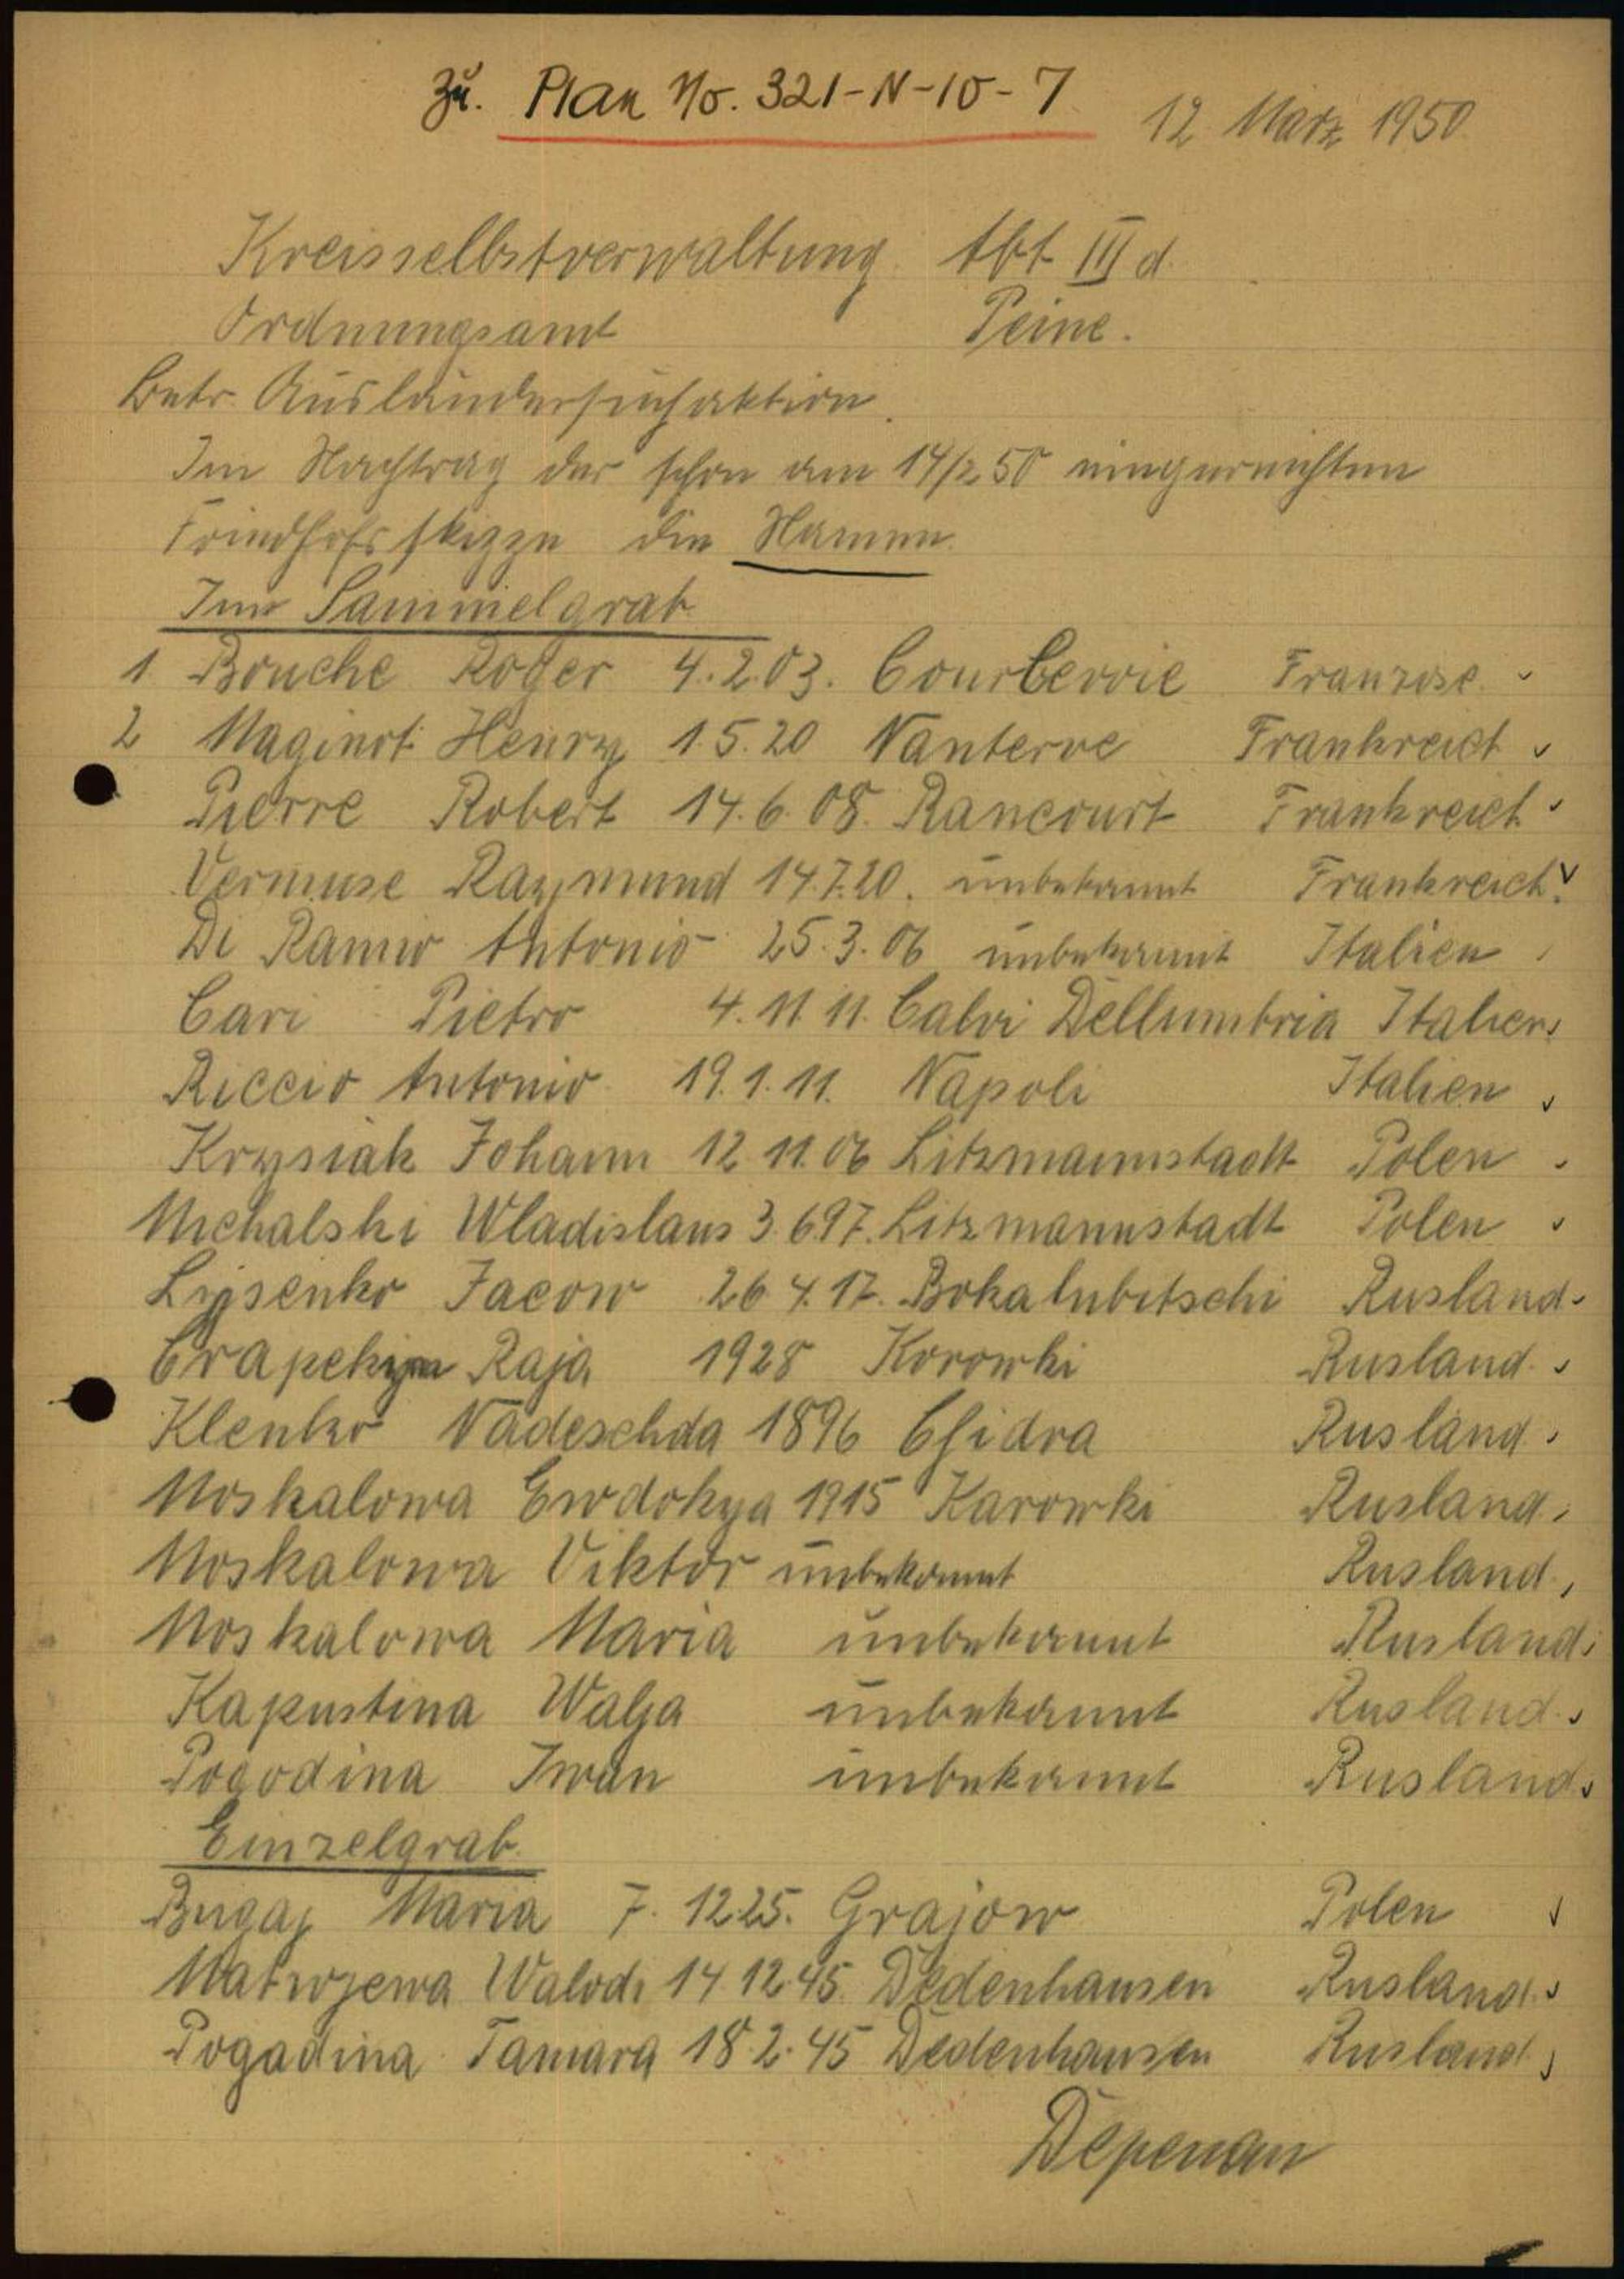 Zu. Plan No. 321-N-10-7
12 März 1950
Kreisselbstverwaltung Abt III d.
Ordnungsamt Peine.
Betr. Ausländersuchaktion.
Im Nachtrag der schon am 14/2 50 eingereichten
Friedhofsskizze die Namen.
Im Sammelgrab
1 Bouche Roger 4.2.03. Courbervie Franzose
2 Maginot Henry 1.5.20 Nanterve Frankreich
Pierre Robert 14.6.08. Rancourt Frankreich
Vermuse Raymund 14.7.20. unbekannt Frankreich.
Di Ramio Antonio 25.3.06 unbekannt Italien
Cari Pietro 4.11.11. Calvi Dellumbria Italien
Riccio Antonio 19.1.11. Napoli Italien
Krysiak Johann 12.11.06 Litzmannstadt Polen
Michalski Wladislaus 3.6.97. Litzmannstadt Polen
Lysenko Jacow 26.4.17. Bokalubitschi Rusland
Raja 1928 Korowki Rusland.
Klenko Nadeschda 1896 Rusland
Moskalowa Ewdokya 1915 Karowki Rusland.
Moskalowa Viktor unbekannt Rusland.
Moskalowa Maria unbekannt Rusland
Kapustina Walja unbekannt Rusland.
Pogodina Iwan unbekannt Rusland
Einzelgrab.
Bugaj Maria 7.12.25. Grajow Polen
Matwjewa Walodi 14.12.45. Dedenhausen Rusland.
Pogadina Tamara 18.2.45 Dedenhausen Rusland
Depenau